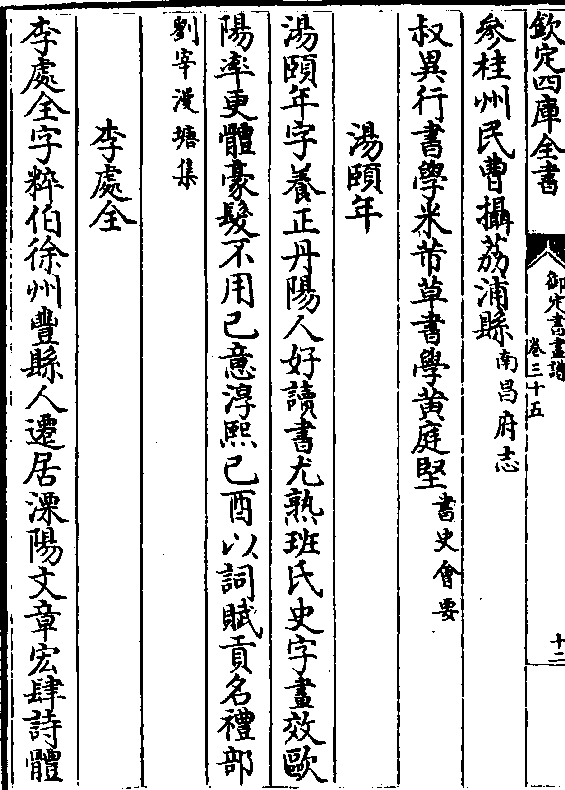 欽定四庫全書
御定書畫譜
卷三十五
十二
參桂州民曹攝荔浦縣南昌府志
叔異行書學米芾草書學黄庭堅書史會要
湯頤年
湯頤年字養正丹陽人好讀書尤熟班氏史字畫效歐
陽率更體豪髮不用己意淳熙己酉以詞賦貢名禮部
劉宰漫塘集
李處全
李處全字粹伯徐州豐縣人遷居溧陽文章宏肆詩體